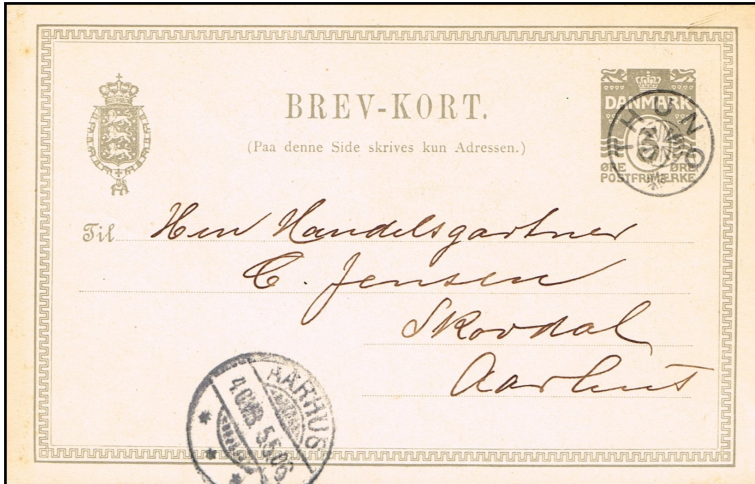 BREV-KORT.
(Paa denne Side skrives kun Adressen.)
DANMARK
ØRE ØRE
POSTFRIMÆRKE
Til Herr Handelsgartner
C. Jensen
Skovdal
Aarhus
AARHUS